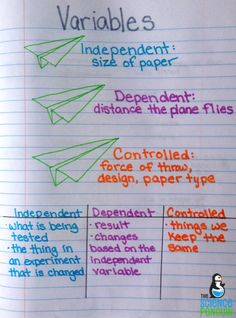 Variables
Independent:
size of paper
Dependent:
distance the plane flies
Controlled:
force of throw,
design, paper type
Independent
• what is being
tested
• the thing in
an experiment
that is changed
Dependent
• result
• changes
based on the
independent
variable
Controlled
• things we
keep the
same
THE
SCIENCE
PENGUIN